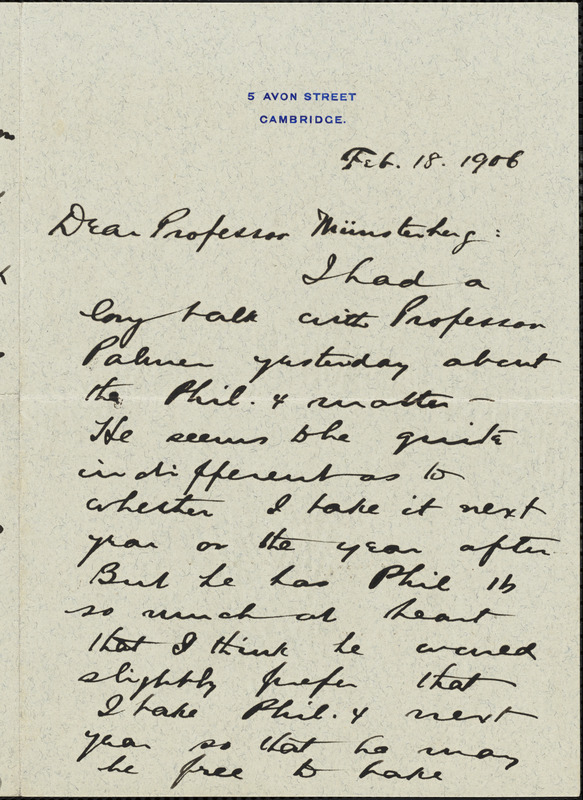 5 AVON STREET
CAMBRIDGE.
Feb. 18. 1906
Dear Professor Münsterberg:
I had a
long talk with Professor
Palmer yesterday about
the Phil. 4 matter –
He seems to be quite
indifferent as to
whether I take it next
year or the year after
But he has Phil 1b
so much at heart
that I think he would
slightly prefer that
I take Phil. 4 next
year so that he may
be free to take